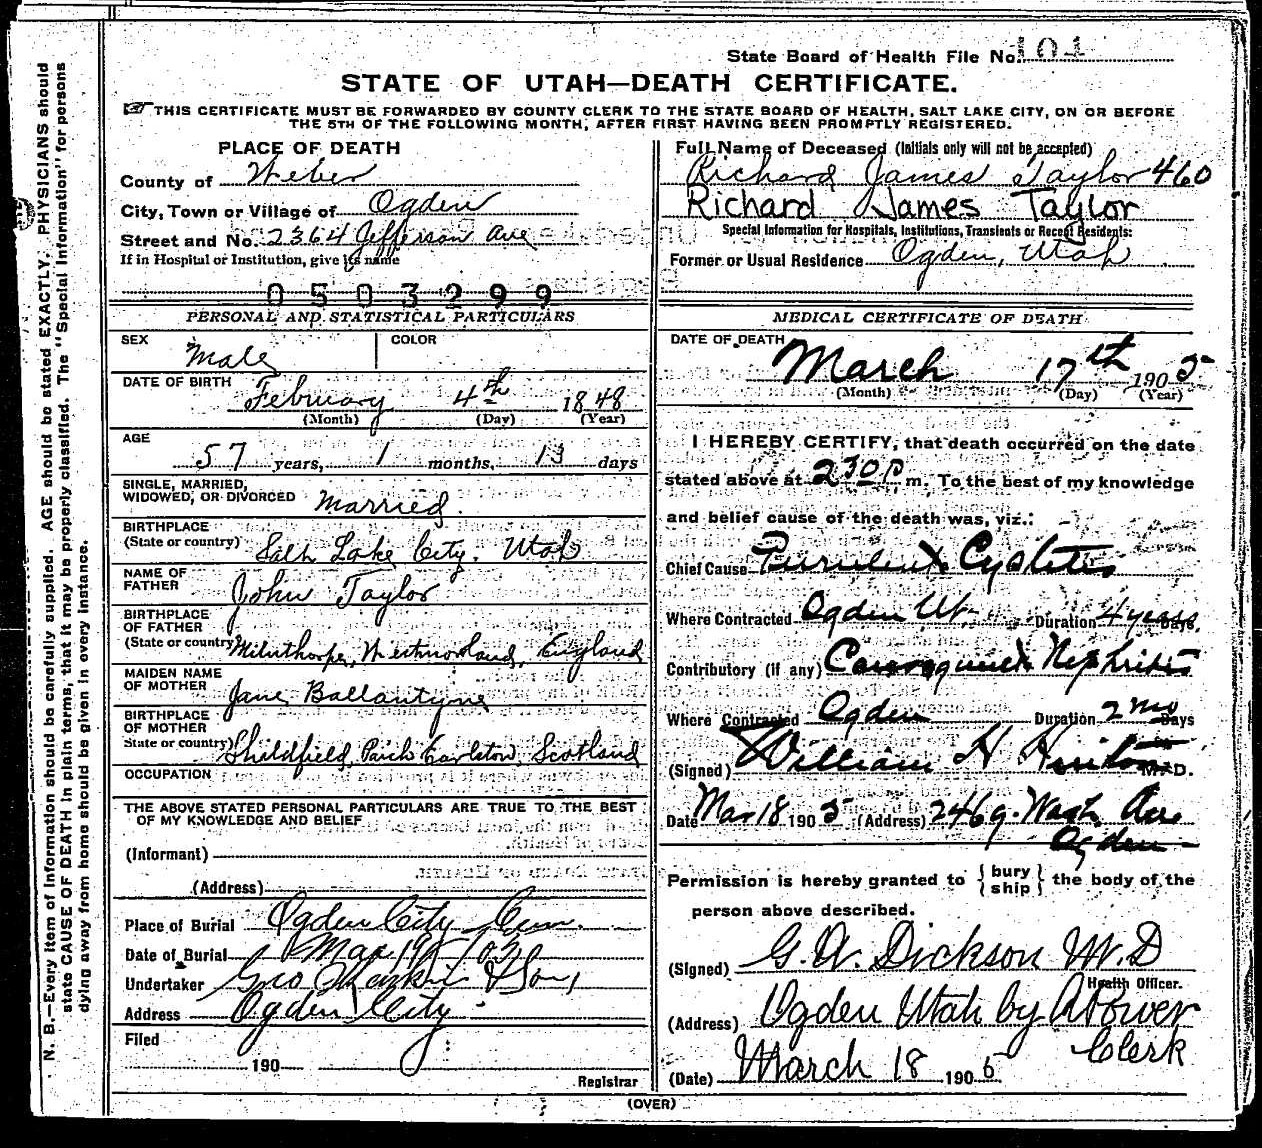 State Board of Health File No. 104
STATE OF UTAH—DEATH CERTIFICATE.
THIS CERTIFICATE MUST BE FORWARDED BY COUNTY CLERK TO THE STATE BOARD OF HEALTH, SALT LAKE CITY, ON OR BEFORE
THE 5TH OF THE FOLLOWING MONTH, AFTER FIRST HAVING BEEN PROMPTLY REGISTERED.
PLACE OF DEATH
County of Weber
City, Town or Village of Ogden
Street and No. 2364 Jefferson Ave
If in Hospital or Institution, give its name
0503299
PERSONAL AND STATISTICAL PARTICULARS
SEX Male COLOR
DATE OF BIRTH
February 4th 1848
(Month) (Day) (Year)
AGE
57 years, 1 months, 13 days
SINGLE, MARRIED,
WIDOWED, OR DIVORCED Married.
BIRTHPLACE
(State or country) Salt Lake City. Utah
NAME OF
FATHER John Taylor
BIRTHPLACE
OF FATHER
(State or country) Milnthorpe, Westmorland, England
MAIDEN NAME
OF MOTHER Jane Ballantyne
BIRTHPLACE
OF MOTHER
State or country) Shildfield, Parish Earlston, Scotland
OCCUPATION
THE ABOVE STATED PERSONAL PARTICULARS ARE TRUE TO THE BEST
OF MY KNOWLEDGE AND BELIEF
(Informant)
(Address)
Place of Burial Ogden City Cem.
Date of Burial Mar 19
Undertaker Geo & Sons
Address Ogden City
Filed
190
Registrar
Full Name of Deceased (Initials only will not be accepted)
Richard James Taylor 460
Richard James Taylor
Special Information for Hospitals, Institutions, Transients or Recent Residents:
Former or Usual Residence Ogden, Utah
MEDICAL CERTIFICATE OF DEATH
DATE OF DEATH
March 17th 1905
(Month) (Day) (Year)
I HEREBY CERTIFY, that death occurred on the date
stated above at 230 P m. To the best of my knowledge
and belief cause of the death was, viz.:
Chief Cause Purulent Cystitis
Where Contracted Ogden Ut. Duration 4 years Days.
Contributory (if any) Consequent Nephritis
Where Contracted Ogden Duration 2 mo Days
(Signed) William H M. D.
Date Mar 18 1905 (Address) 2469 Wash. Ave
Ogden
Permission is hereby granted to {bury
ship} the body of the
person above described.
(Signed) G. W. Dickson M. D
Health Officer.
(Address) Ogden Utah by A Power
Clerk
(Date) March 18 1905
(OVER)
N. B.—Every item of information should be carefully supplied. AGE should be stated EXACTLY. PHYSICIANS should
state CAUSE OF DEATH in plain terms, that it may be properly classified. The "Special Information" for persons
dying away from home should be given in every instance.